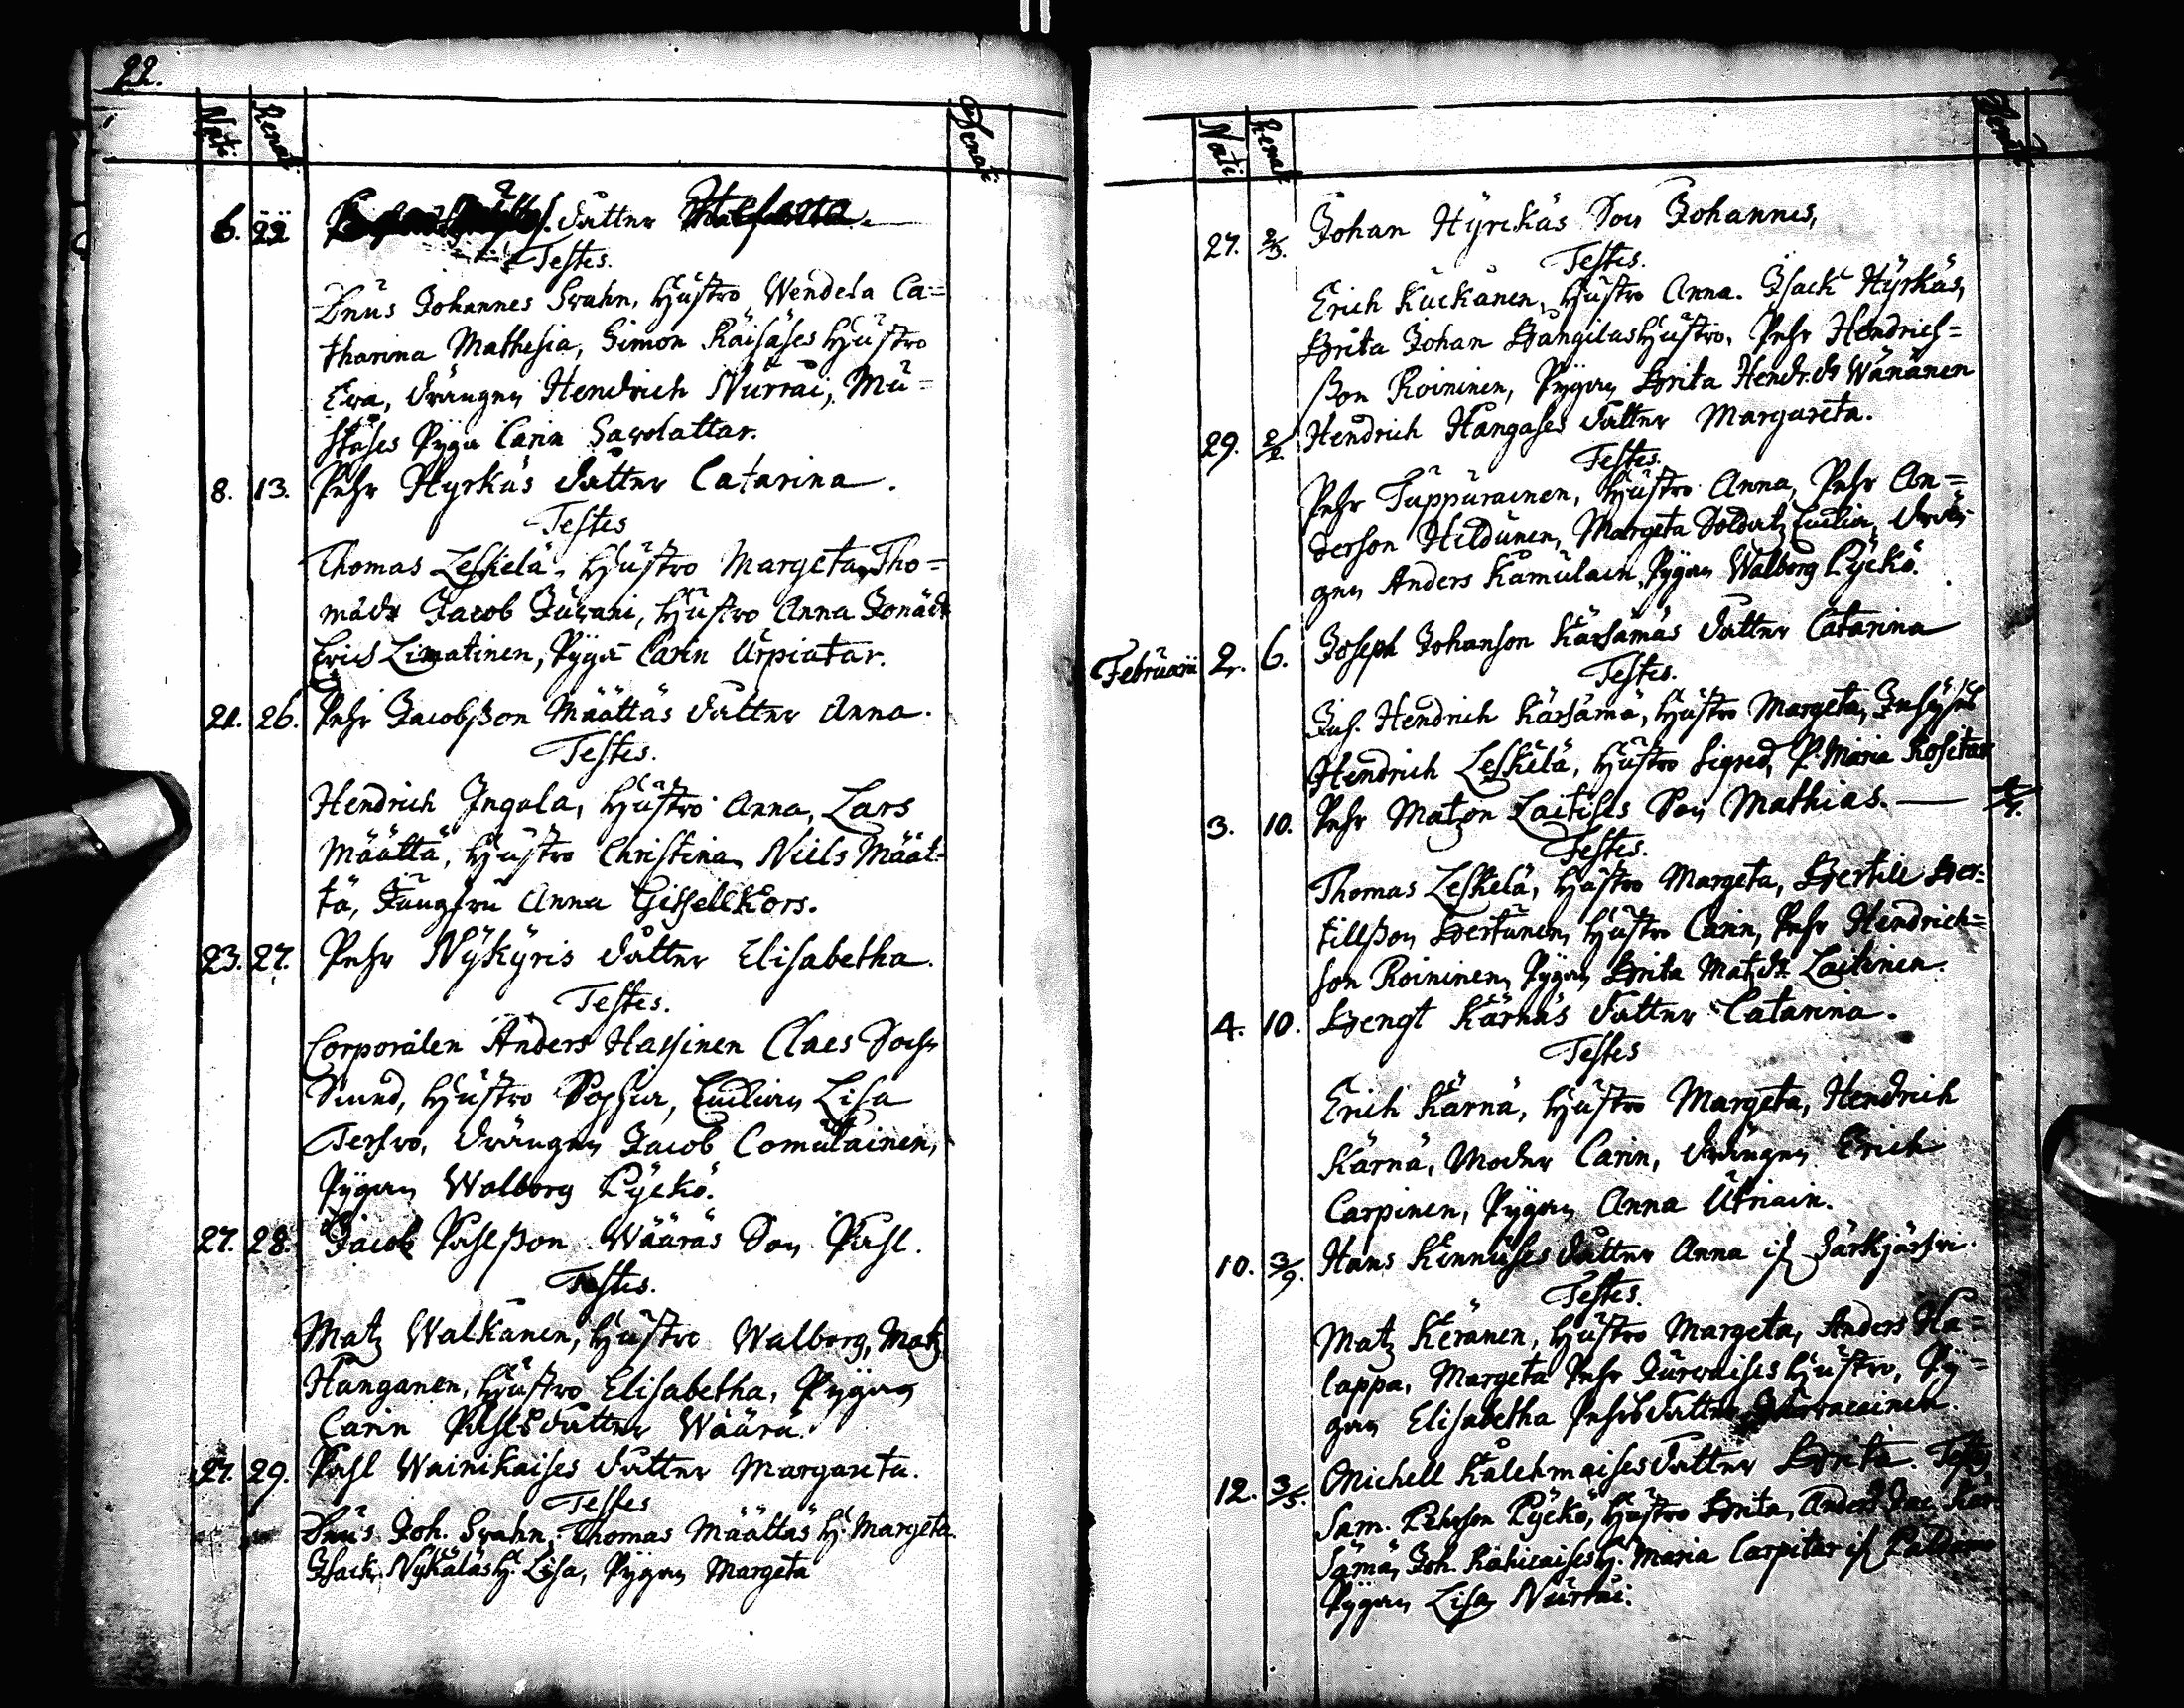 22.
Nati Renati Denati
6. 22 dotter
Testes.
Dnus Johannes Svahn, Hustro Wendela Ca=
tharina Mathesia, Simon Räisäses Hustro
Ewa, drängen Hendrich Nurrai, Mu=
stases Pyga Carin Sawolattar.
8. 13. Pehr Hyrkäs dotter Catarina.
Testes
Thomas Leskelä, Hustro Margeta Tho=
mädr Jacob Juvani, Hustro Anna Jonädr
Erich Limatinen, Pyga Carin Urpiatar.
21. 26. Pehr Jacobsson Määttäs dotter Anna.
Testes.
Hendrich Ingala, Hustro Anna, Lars
Määttä, Hustro Christina, Niels Määt=
tä, Jungfru Anna Gissellkors.
23. 27. Pehr Nykyris dotter Elisabetha.
Testes.
Corporalen Anders Hassinen Claes
Sund, Hustro Sophia, Lisa
Terfvo, drängen Jacob Comulainen,
Pygan Walborg Pyckö.
27. 28. Jacob Pahlsson Wääräs Son Pahl.
Testes.
Matz Walkanen, Hustro Walborg, Matz
Hanganen, Hustro Elisabetha, Pygan
Carin Pahlsdotter Wäärä.
27. 29. Pahl Wainikaises dotter Margareta.
Testes
Dnus Joh. Svahn, Thomas Määttäs H. Margeta.
Isack Nykäläs H. Lisa, Pygan Margeta
Nati Renati Denati
27. 2/3. Johan Hyrckäs Son Johannes,
Testes.
Erich Kuckanen, Hustro Anna. Isack Hyrkäs,
Brita Johan Bangilas Hustro, Pehr Hendrich=
sson Roininen, Pygan Brita Hendr.dr Wänänen
29. 2/2. Hendrich Hangases dotter Margareta.
Testes.
Pehr Tuppurainen, Hustro Anna, Pehr An=
derson Hildunen, Margeta Soldatz drän
gen Anders Kamulain, Pygan Walborg Pyckö.
Februarii 2. 6. Joseph Johanson Kärsämäs dotter Catarina
Testes.
Inh. Hendrich Kärsämä, Hustro Margeta, Inhyses
Hendrich Leskelä, Hustro Sigred, P. Maria Kositar
3. 10. Pehr Matzon Laitises Son Mathias.
Testes.
Thomas Leskelä, Hustro Margeta, Bertill Ber=
tillsson Bertunen, Hustro Carin, Pehr Hendrich=
son Roininen, Pygan Brita Matzdr Laitinen.
4. 10. Bengt Kärnäs dotter Catarina.
Testes
Erich Kärnä, Hustro Margeta, Hendrich
Kärnä, Moder Carin, drängen Erich
Carpinen, Pygan Anna Utriain.
10. 3/9. Hans Kinnuses dotter Anna if Särkjärfvi.
Testes.
Matz Keränen, Hustro Margeta, Anders Ha=
lappa, Margeta Pehr Jurvaises Hustro, Py=
gan Elisabetha Pehrsdotter
12. 3/5. Michell Kälckmaises dotter Brita. Testes
Sam. Pehrson Pyckö, Hustro Brita, Anders Jac. Kär
sämä, Joh. Kähicaises H. Maria Carpitar if Paldamo
Pygan Lisa Nurrai.